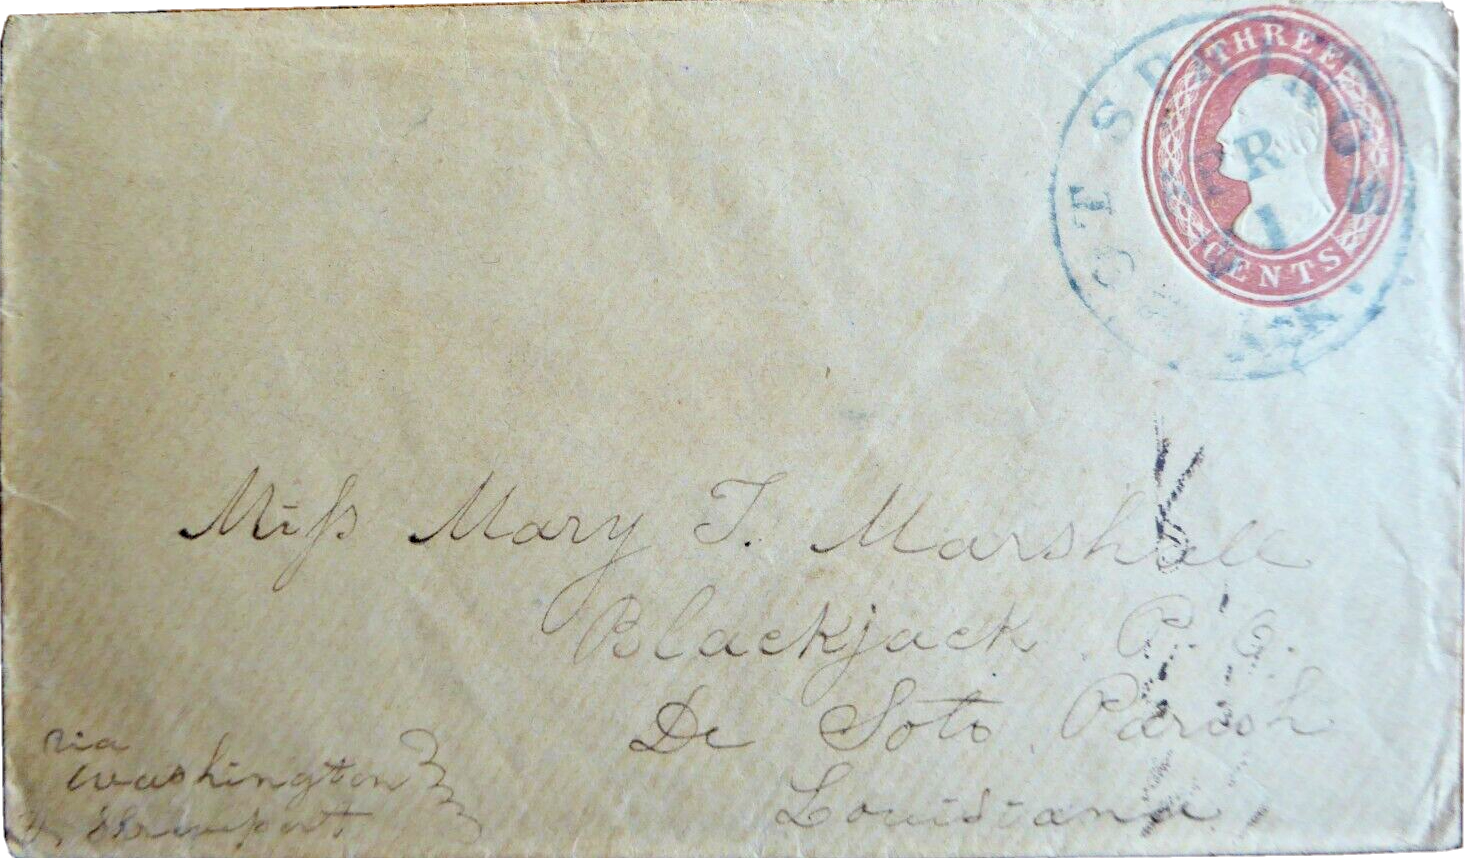 THREE
CENTS
HOT SPRINGS
APR
1
ARK.
Miſs Mary T. Marshall
Blackjack P. O.
De Soto Parish
Louisiana
via
Washington
& Shreveport.